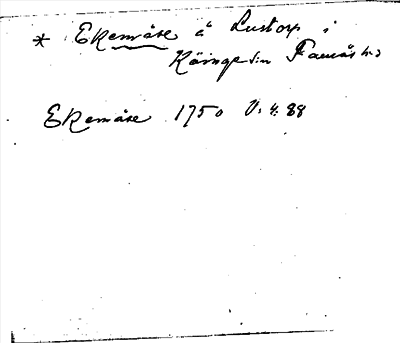 * Ekemåse å Lustorp i
Köinge sn Faurås hd
Ekemåse 1750 V: 4: 88